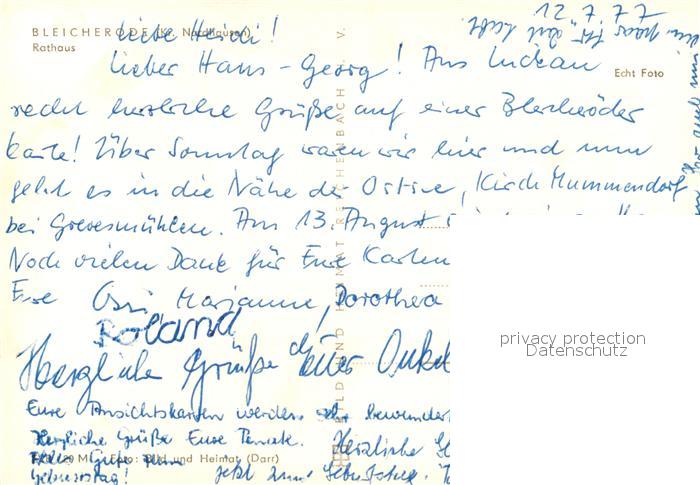 12.7.77
BLEICHERODE (Kr. Nordhausen)
Rathaus
Echt Foto
Liebe Heidi!
Lieber Hans-Georg! Aus Luckau
recht herzliche Grüße auf einer Bleicheröder
Karte! Über Sonntag waren wir hier und nun
geht es in die Nähe der Ostsee, Kirch Mummendorf
bei Grevesmühlen. Am 13. August
Noch vielen Dank für Eure Karten
Eure Ossi Marianne, Dorothea
Roland
Herzliche Grüße Euer Onkel
Eure Ansichtskarten werden sehr bewundert
Herzliche Grüße Eure Tante. Herzliche
Alles Gute zum
Geburtstag!
jetzt zum Geburtstag.
Foto: Bild und Heimat (Darr)
BILD UND HEIMAT REICHENBACH I. V.
privacy protection
Datenschutz